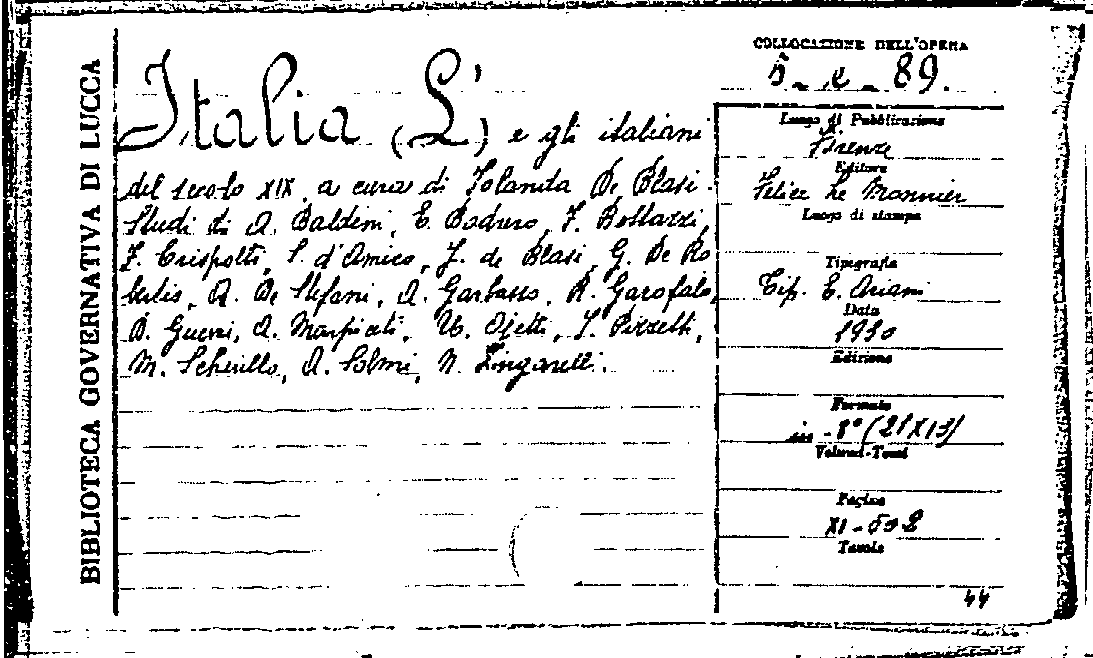 BIBLIOTECA GOVERNATIVA DI LUCCA
Italia (L') e gli italiani
del secolo XIX a cura di Iolanda De Blasi.
Studi di A. Baldini, E. Bodrero, F. Bottazzi,
F. Crispolti, S. d'Amico, J. de Blasi, G. De Ro
bertis, A. De Stefani, A. Garbasso, R. Garofalo,
D. Guerri, A. Marpicati, U. Ojetti, I. Pizzetti,
M. Scherillo, A. Solmi, N. Zingarelli.
COLLOCAZIONE DELL'OPERA
89.
Luogo di Pubblicazione
Firenze
Editore
Felice Le Monnier
Luogo di stampa
Tipografia
Tip. E. Ariani
Data
1930
Edizione
Formato
in - 8° (21X13)
Volumi-Tomi
Pagine
XI - 502
Tavole
44